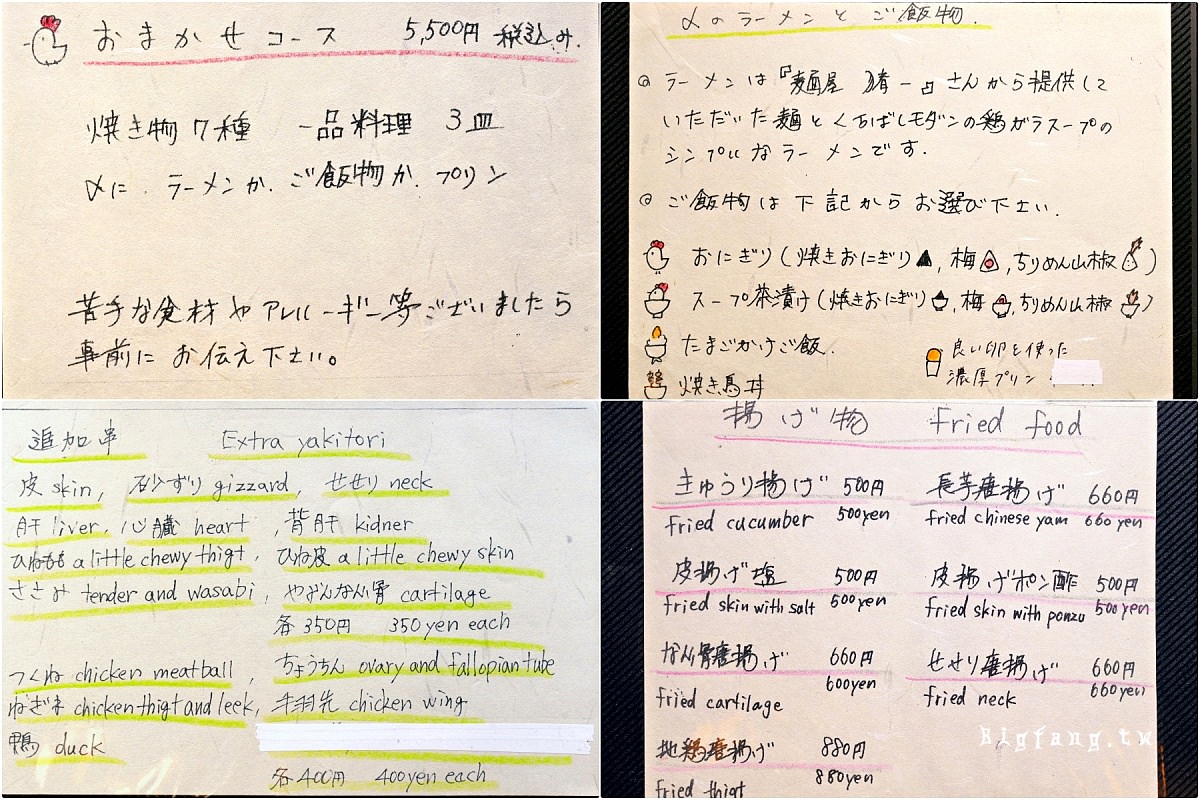 おまかせコース 5,500円 税込み.
焼き物7種 一品料理 3皿
〆に、ラーメンか、ご飯物か、プリン
苦手な食材やアレルーギー等ございましたら
事前に お伝え下さい。
〆のラーメンと、ご飯物.
ラーメンは『麺屋 さんから提供して
いただいた麺とくちばしモダンの鶏ガラスープの
シンプルなラーメンです.
ご飯物は下記からお選び下さい.
おにぎり(焼きおにぎり, 梅, ちりめん山椒)
スープ茶漬け(焼きおにぎり, 梅, ちりめん山椒)
たまごかけご飯.
焼き鳥丼
良い卵を使った
濃厚プリン
追加串 Extra yakitori
皮 skin, 砂ずり gizzard, せせり neck
肝 liver, 心臓 heart, 背肝 kidner
ひねもも a little chewy thigt, ひね皮 a little chewy skin
ささみ tender and wasabi, やげんなん骨 cartilage
各350円 350yen each
つくね chicken meatball, ちょうちん ovary and fallopian tube
ねぎま chicken thigt and leek, 手羽先 chicken wing
鴨 duck
各400円 400yen each
揚げ物 Fried food
きゅうり揚げ 500円 長芋唐揚げ 660円
fried cucumber 500yen fried chinese yam 660yen
皮揚げ塩 500円 皮揚げポン酢 500円
fried skin with salt 500yen fried skin with ponzu 500yen
なん骨唐揚げ 660円 せせり唐揚げ 660円
fried cartilage 600yen fried neck 660yen
地鶏唐揚げ 880円
fried thigt 880yen
Bigfang.tw